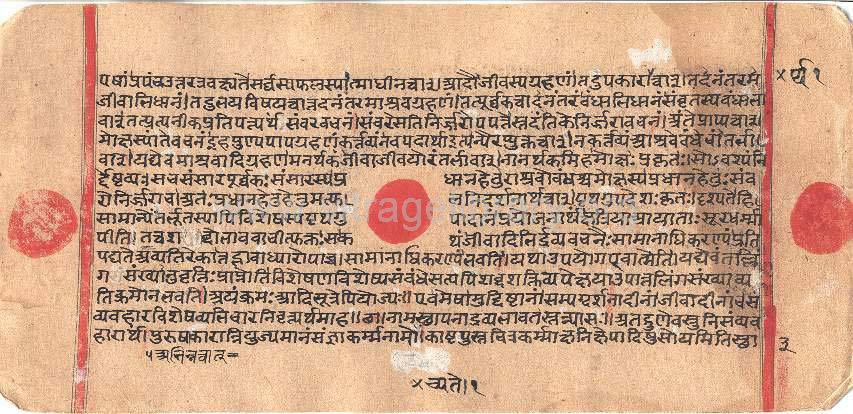 एषां प्रपंच उत्तरत्र वक्ष्यते सर्वस्य फलस्यात्माधीनत्वात्। आदौ जीवस्य ग्रहणं। तदुपकारार्थत्वात्। तदनंतरम ×र्थ१
जीवाभिधानं। तदुभयविषयत्वात्तदनंतरमाश्रवग्रहणं। तत्पूर्वकत्वात्तदनंतरं बंधाभिधानं संवृतस्य बंधाभा
वात्तत्प्रत्यनीकप्रतिपत्त्यर्थं संवरवचनं। संवरे सति निर्जरोपपत्तेस्तदंतिके निर्जरावचनं। अंते प्राप्यत्वात्
मोक्षस्यांते वचनं इह पुण्यपापग्रहणं कर्त्तव्यं नवपदार्था इत्यन्यैरप्युक्तत्वात्। न कर्त्तव्यं आश्रवे बंधे चांतर्भा
वात्। यद्येवमाश्रवादिग्रहणमनर्थकं जीवाजीवयोरंतर्भावात्। नानर्थकमिह मोक्षः प्रकृतः सोऽवश्यं नि
र्देष्टव्यः स च संसारपूर्वकः संसारस्य प्र धानहेतुराश्रवो बंधश्च मोक्षस्य प्रधानहेतुः संव
रो निर्जरा च। अतः प्रधानहेतुहेतुमत्फ लनिदर्शनार्थत्वात् पृथगुपदेशः कृतः दृश्यते हि
सामान्येंतर्भूतस्यापि विशेषस्य पृथगु पादानं प्रयोजनार्थं क्षत्रिया आयाताः सूरवर्मा
पीति। तत्त्वशब्दो भाववाचीत्युक्तः स क थं जीवादिभिर्द्रव्यवचनैः सामानाधिकरण्यं प्रति
पद्यते अव्यतिरेकात्तद्भावाध्यारोपाच्च सामानाधिकरण्यं भवति। यथा उपयोग एवात्मेति। यद्येवं तल्लिं
ग संख्यानुवृत्तिः प्राप्नोति विशेषणविशेष्यसंबंधे सत्यपि शब्दशक्तिव्यपेक्षया उपात्तलिंगसंख्याव्य
तिक्रमो न भवति। अयं क्रमः आदिसूत्रेपि योज्यः॥ एवमेषामुद्दिष्टानां सम्यग्दर्शनादीनां जीवादीनां च सं
व्यवहारविशेषव्यभिचारनिवृत्त्यर्थमाह॥ नामस्थापनाद्रव्यभावतस्तन्न्यासः॥ अतद्गुणे वस्तुनि संव्यव
हारार्थं पुरुषकारान्नियुज्यमानं संज्ञाकर्म्म नाम। काष्ठपुस्तचित्रकर्म्माक्षनिक्षेपादिषु सोयमिति स्था ३
५ अभिन्नत्वात्=
×च्यते।१